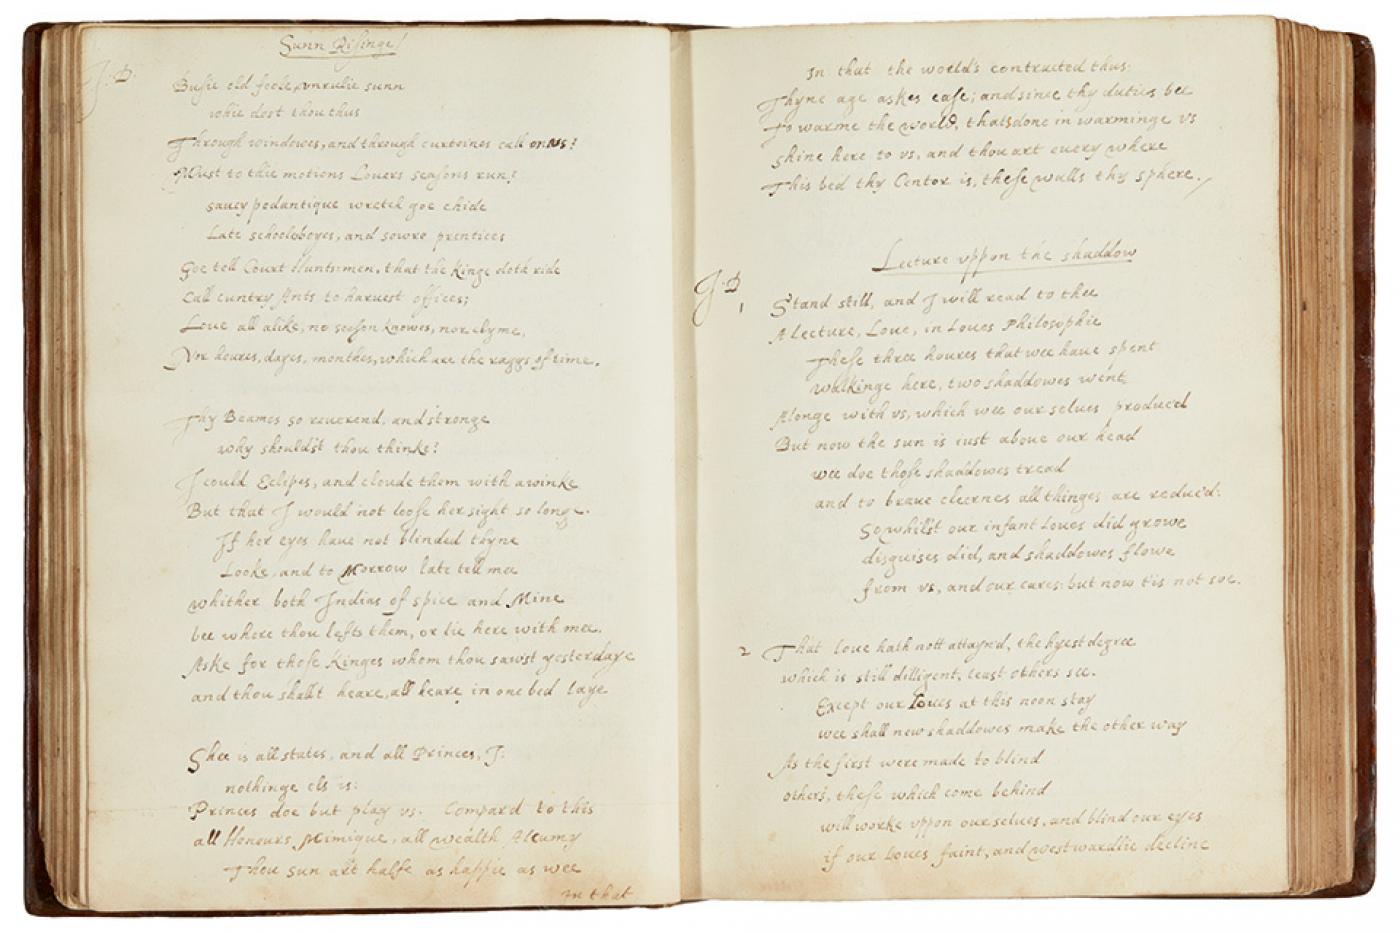 Sunn Risinge /
J. D.
Busie old foole, vnrulie sunn
whie dost thou thus
Through windowes, and through curteines call on vs?
Must to thie motions Louers seasons run?
saucy pedantique wretch goe chide
Late schooleboyes, and sowre prentices
Goe tell Court Huntsmen, that the Kinge doth ride
Call cuntry Ants to haruest offices;
Loue all alike, no season knowes, nor clyme,
Nor houres, dayes, monthes, which are the raggs of time.
Thy Beames so reuerend, and stronge
why shouldst thou thinke?
I could Eclipes, and cloude them with a winke
But that I would not loose her sight so longe.
If her eyes haue not blinded thyne
Looke, and to Morrow late tell mee
whither both Indias of spice and Mine
bee where thou lefts them, or lie here with mee.
Aske for those Kinges whom thou sawst yesterdaye
and thou shallt heare, all heare in one bed laye
Shee is all states, and all Princes, I.
nothinge els is:
Princes doe but play vs. Compard to this
all Honours Mimique, all wealth Alcumy
Thou sun art halfe as happie as wee
in that
In that the world's contracted thus.
Thyne age askes ease; and since thy duties bee
To warme the world, thats done in warminge vs
shine here to vs, and thou art euery where
This bed thy Center is, these walls thy sphere. /
Lecture vppon the shaddow
J. D.
1 Stand still, and I will read to thee
A lecture, Loue, in Loues Philosophie
These three houres that wee haue spent
walkinge here, two shaddowes went
Alonge with vs, which wee our selues produc'd
But now the sun is iust aboue our head
wee doe those shaddowes tread
and to braue cleernes all thinges are reduc'd:
So whilst our infant Loues did growe
disguises did, and shaddowes flowe
from vs, and our cares: but now t'is not soe.
2 That loue hath nott attaynd, the hyest degree
which is still dilligent, least others see.
Except our Loues at this noon stay
wee shall new shaddowes make the other way
As the first were made to blind
others, these which come behind
will worke vppon our selues, and blind our eyes
if our Loues faint, and westwardlie decline